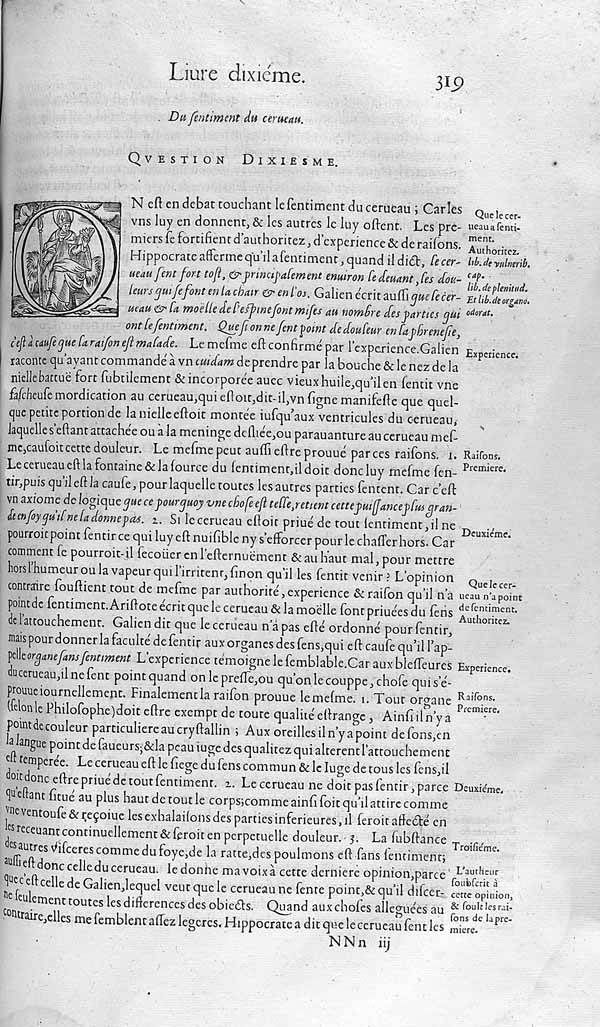 Liure dixiéme.
319
Du ſentiment du cerueau.
QVESTION DIXIESME.
ON eſt en debat touchant le ſentiment du cerueau ; Car les
vns luy en donnent, & les autres le luy oſtent. Les pre-
miers ſe fortifient d'authoritez, d'experience & de raiſons.
Hippocrate afferme qu'il a ſentiment, quand il dict, le cer-
ueau ſent fort toſt, & principalement enuiron le deuant, les dou-
leurs qui ſe font en la chair & en l'os. Galien écrit auſſi que le cer-
ueau & la moëlle de l'eſpine ſont miſes au nombre des parties qui
ont le ſentiment. Que ſi on ne ſent point de douleur en la phreneſie,
c'eſt à cauſe que la raiſon eſt malade. Le meſme eſt confirmé par l'experience. Galien
raconte qu'ayant commandé à vn cuidam de prendre par la bouche & le nez de la
nielle battuë fort ſubtilement & incorporée auec vieux huile, qu'il en ſentit vne
faſcheuſe mordication au cerueau, qui eſtoit, dit-il, vn ſigne manifeſte que quel-
que petite portion de la nielle eſtoit montée iuſqu'aux ventricules du cerueau,
laquelle s'eſtant attachée ou à la meninge deſliée, ou parauanture au cerueau meſ-
me, cauſoit cette douleur. Le meſme peut auſſi eſtre prouué par ces raiſons. 1.
Le cerueau eſt la fontaine & la ſource du ſentiment, il doit donc luy meſme ſen-
tir, puis qu'il eſt la cauſe, pour laquelle toutes les autres parties ſentent. Car c'eſt
vn axiome de logique que ce pourquoy vne choſe eſt telle, retient cette puiſſance plus gran-
de en ſoy qu'il ne la donne pas. 2. Si le cerueau eſtoit priué de tout ſentiment, il ne
pourroit point ſentir ce qui luy eſt nuiſible ny s'efforcer pour le chaſſer hors. Car
comment ſe pourroit-il ſecoüer en l'eſternuëment & au haut mal, pour mettre
hors l'humeur ou la vapeur qui l'irritent, ſinon qu'il les ſentit venir ? L'opinion
contraire ſouſtient tout de meſme par authorité, experience & raiſon qu'il n'a
point de ſentiment. Ariſtote écrit que le cerueau & la moëlle ſont priuées du ſens
de l'attouchement. Galien dit que le cerueau n'a pas eſté ordonné pour ſentir,
mais pour donner la faculté de ſentir aux organes des ſens, qui eſt cauſe qu'il l'ap-
pelle organe ſans ſentiment L'experience témoigne le ſemblable. Car aux bleſſeures
du cerueau, il ne ſent point quand on le preſſe, ou qu'on le couppe, choſe qui s'é-
prouue iournellement. Finalement la raiſon prouue le meſme. 1. Tout organe
(ſelon le Philoſophe) doit eſtre exempt de toute qualité eſtrange, Ainſi il n'y a
point de couleur particuliere au cryſtallin ; Aux oreilles il n'y a point de ſons, en
la langue point de ſaueurs; & la peau iuge des qualitez qui alterent l'attouchement
eſt temperée. Le cerueau eſt le ſiege du ſens commun & le Iuge de tous les ſens, il
doit donc eſtre priué de tout ſentiment. 2. Le cerueau ne doit pas ſentir, parce
qu'eſtant ſitué au plus haut de tout le corps; comme ainſi ſoit qu'il attire comme
vne ventouſe & reçoiue les exhalaiſons des parties inferieures, il ſeroit affecté en
les receuant continuellement & ſeroit en perpetuelle douleur. 3. La ſubſtance
des autres viſceres comme du foye, de la ratte, des poulmons eſt ſans ſentiment;
auſſi eſt donc celle du cerueau. Ie donne ma voix à cette derniere opinion, parce
que c'eſt celle de Galien, lequel veut que le cerueau ne ſente point, & qu'il diſcer-
ne ſeulement toutes les differences des obiects. Quand aux choſes alleguées au
contraire, elles me ſemblent aſſez legeres. Hippocrate a dit que le cerueau ſent les
NNn iij
Que le cer-
ueau a ſenti-
ment.
Authoritez.
lib. de vulnerib.
cap.
lib. de plenitud.
Et lib. de organo.
odorat.
Experience.
Raiſons.
Premiere.
Deuxiéme.
Que le cer-
ueau n'a point
de ſentiment.
Authoritez.
Experience.
Raiſons.
Premiere.
Deuxiéme.
Troiſiéme.
L'autheur
ſouſcrit à
cette opinion,
& ſoult les rai-
ſons de la pre-
miere.